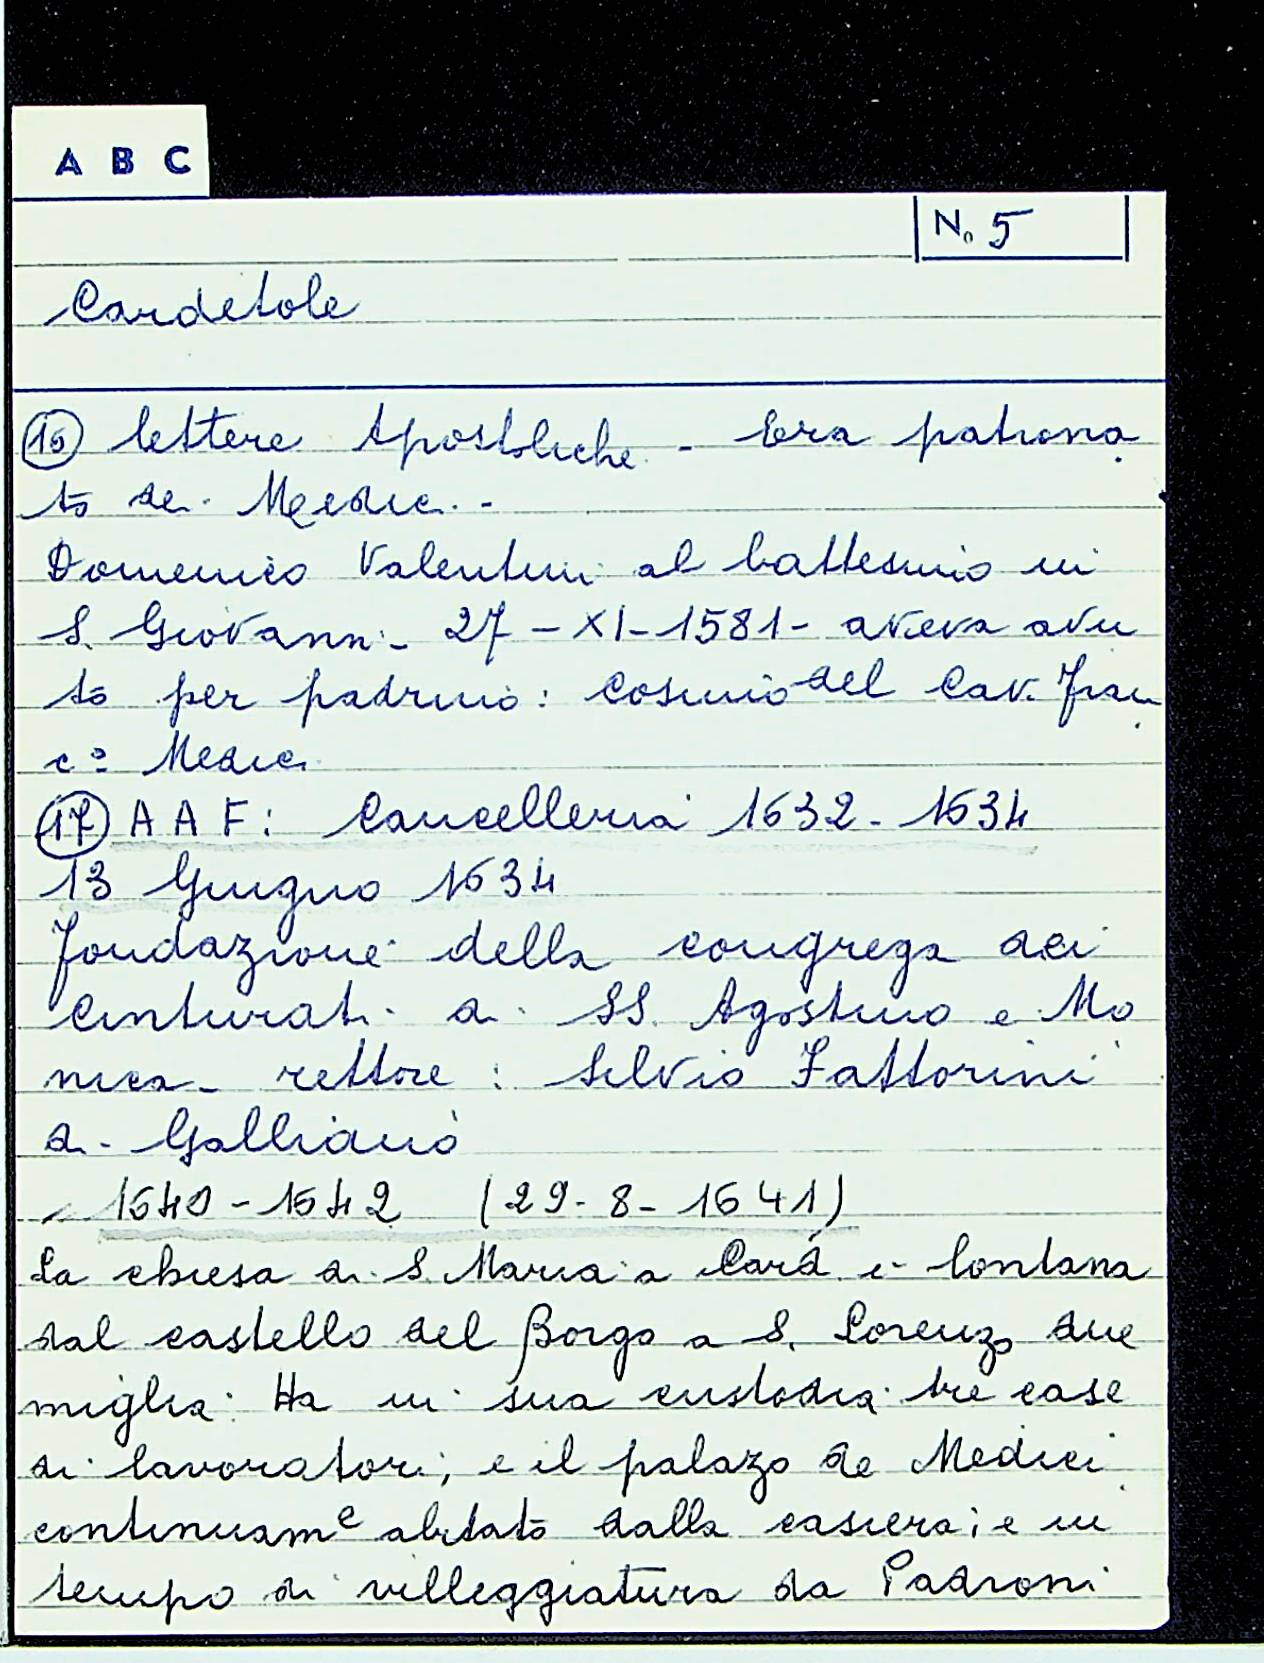 A B C
No 5
Cardetole
16 lettere Apostoliche - Era patrona
to dei Medici. -
Domenico Valentini al battesimo in
S. Giovanni - 27 - XI - 1581 - aveva avu
to per padrino: Cosimo del Cav. Fran
c:º Medici
17 A A F: Cancelleria 1632 - 1634
13 Giugno 1634
fondazione della congrega dei
Cinturati di SS. Agostino e Mo
nica - rettore: Silvio Fattorini
di Galliano
1640 - 1642 (29 - 8 - 1641)
La chiesa di S. Maria a Cará è lontana
dal castello del Borgo a S. Lorenzo due
miglia. Ha in sua custodia tre case
di lavoratori, e il palazo de Medici
continuam^e abitato dalla casiera; e in
tempo di villeggiatura da Padroni